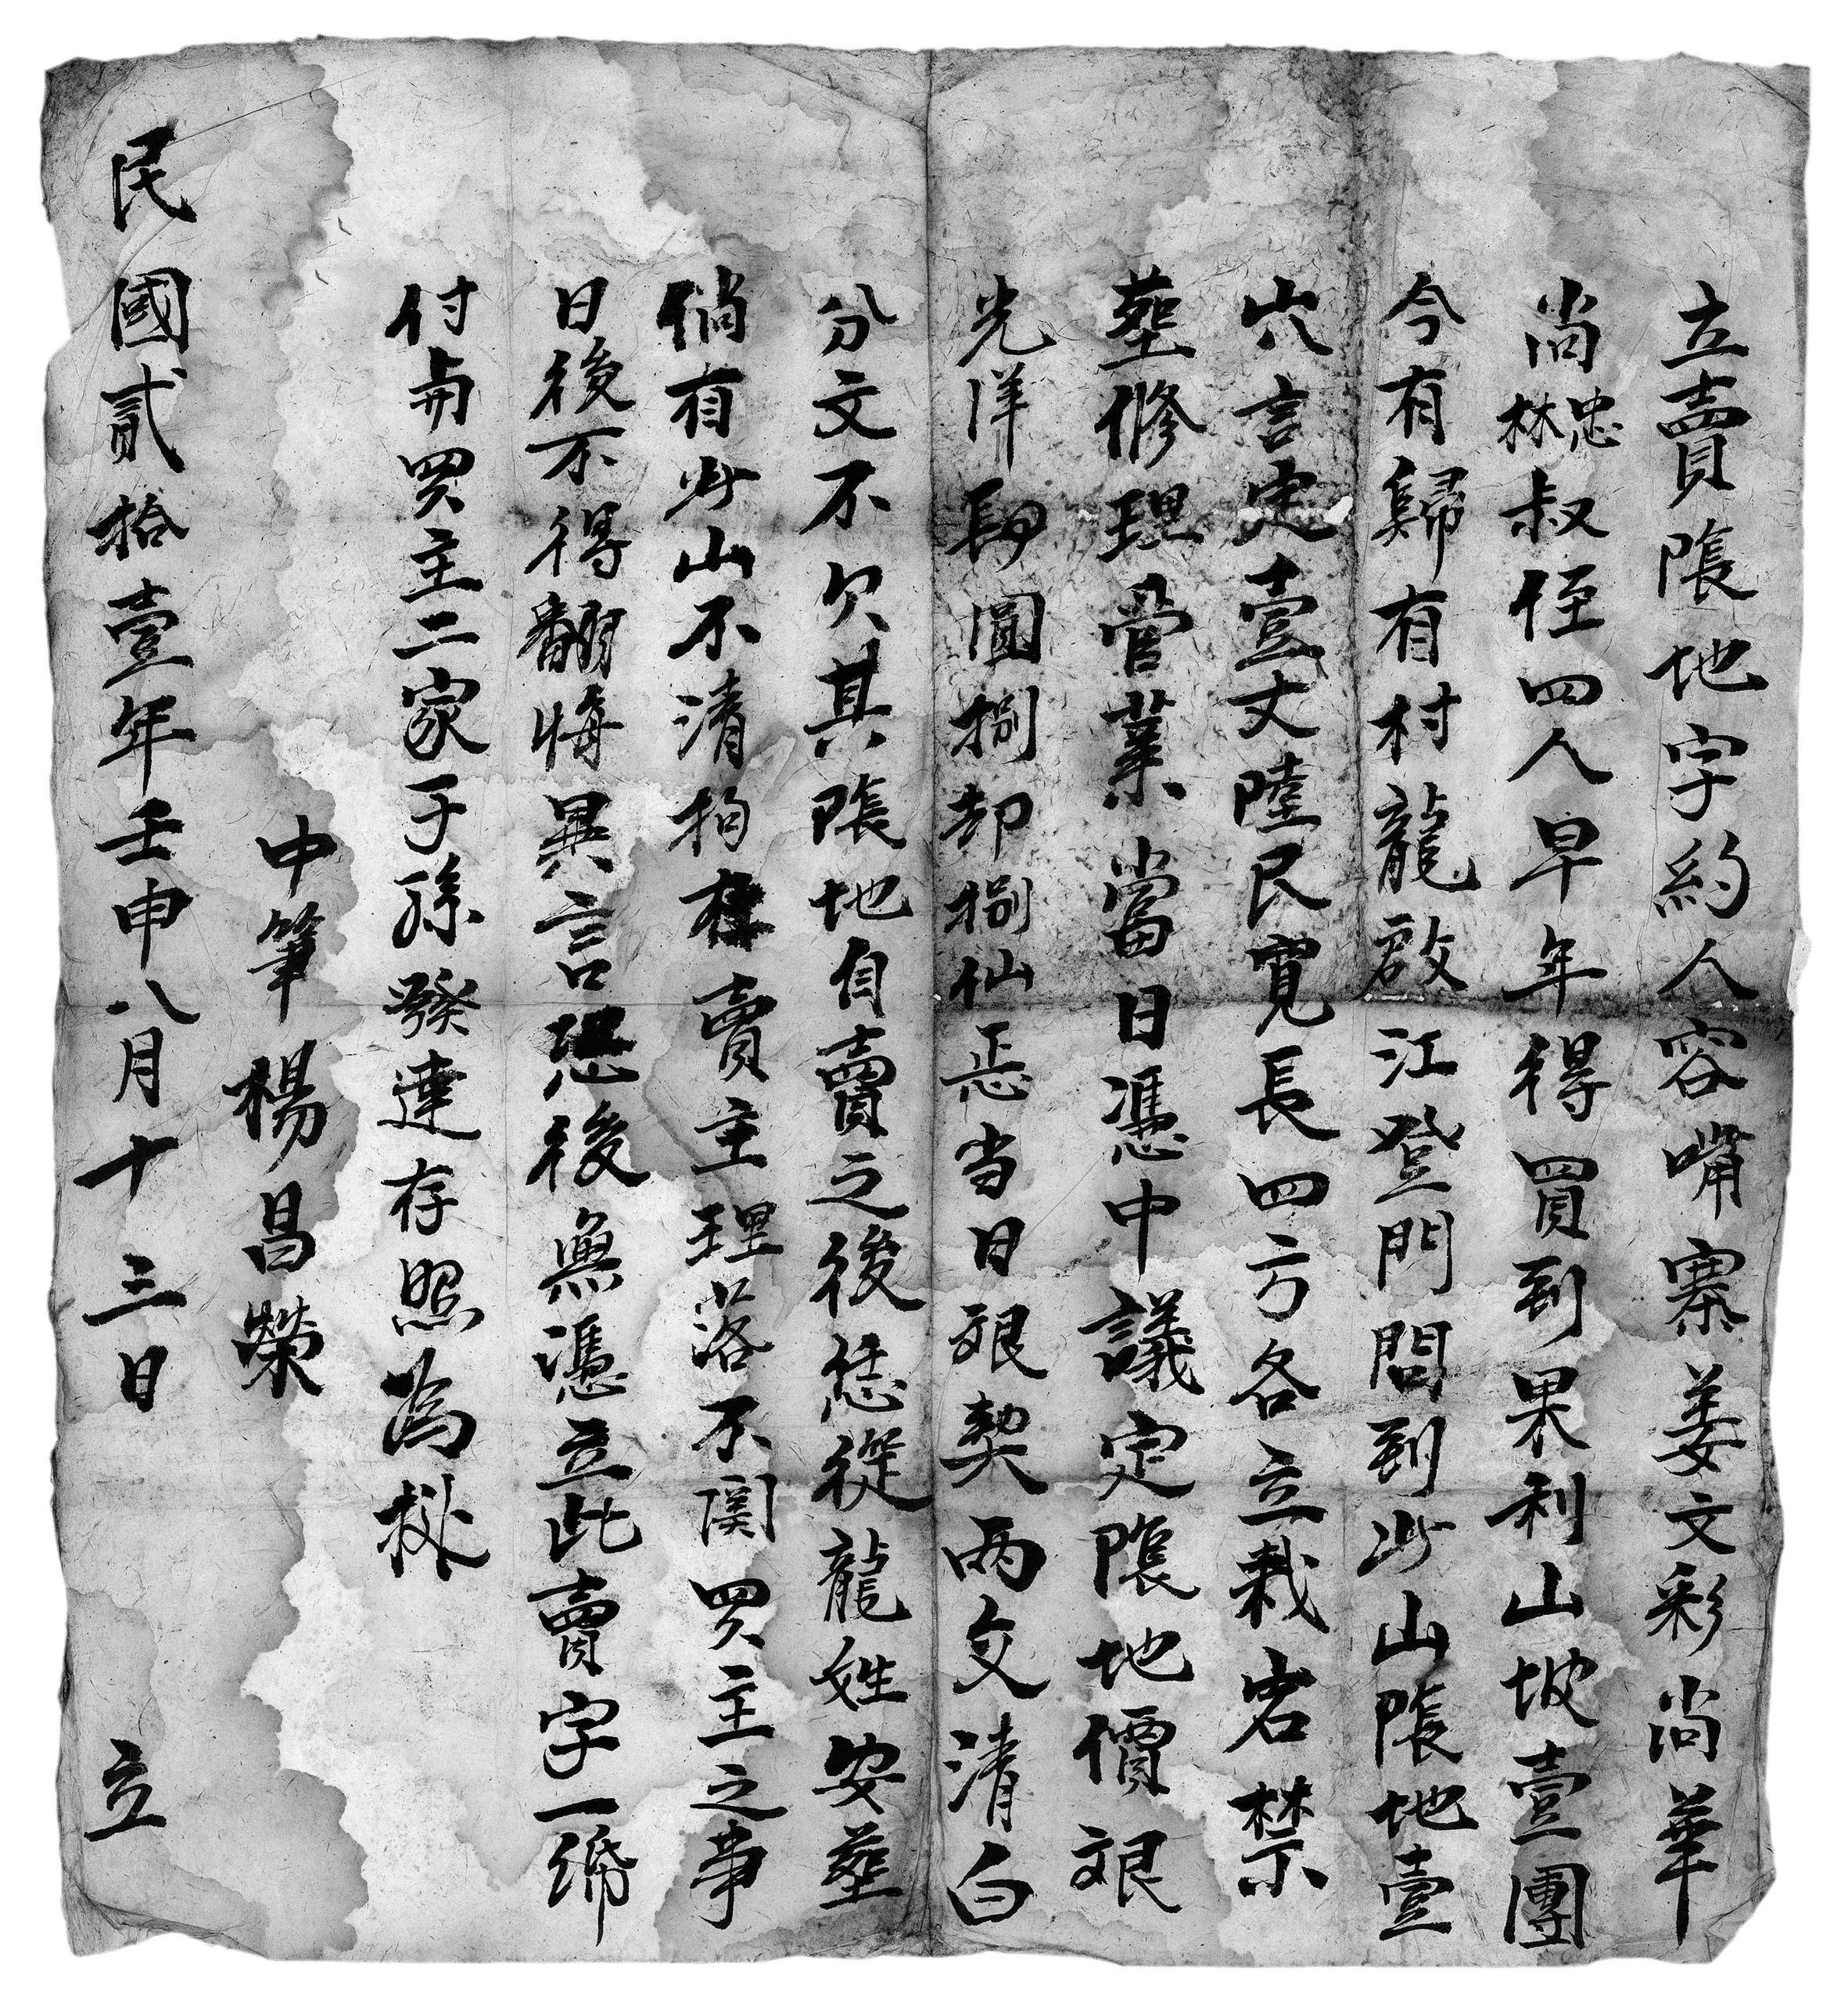 立賣陰地字約人容嘴寨姜文彩尚華
尚忠林叔侄四人早年得買到果利山坡壹團
今有歸有村龍啟江登門問到此山陰地壹
穴言定壹丈陸艮寬長四方各立栽岩禁
塟修理管業當日憑中議定陰地價艮
光洋圓捌却捌仙正当日艮契兩交清白
分文不欠其陰地自賣之後恁從龍姓安塟
倘有此山不清拘在賣主理落不関買主之事
日後不得翻悔異言恐後無憑立此賣字一紙
付與买主二家子孫發達存照為據
中筆楊昌榮
民國貳拾壹年壬申八月十三日立